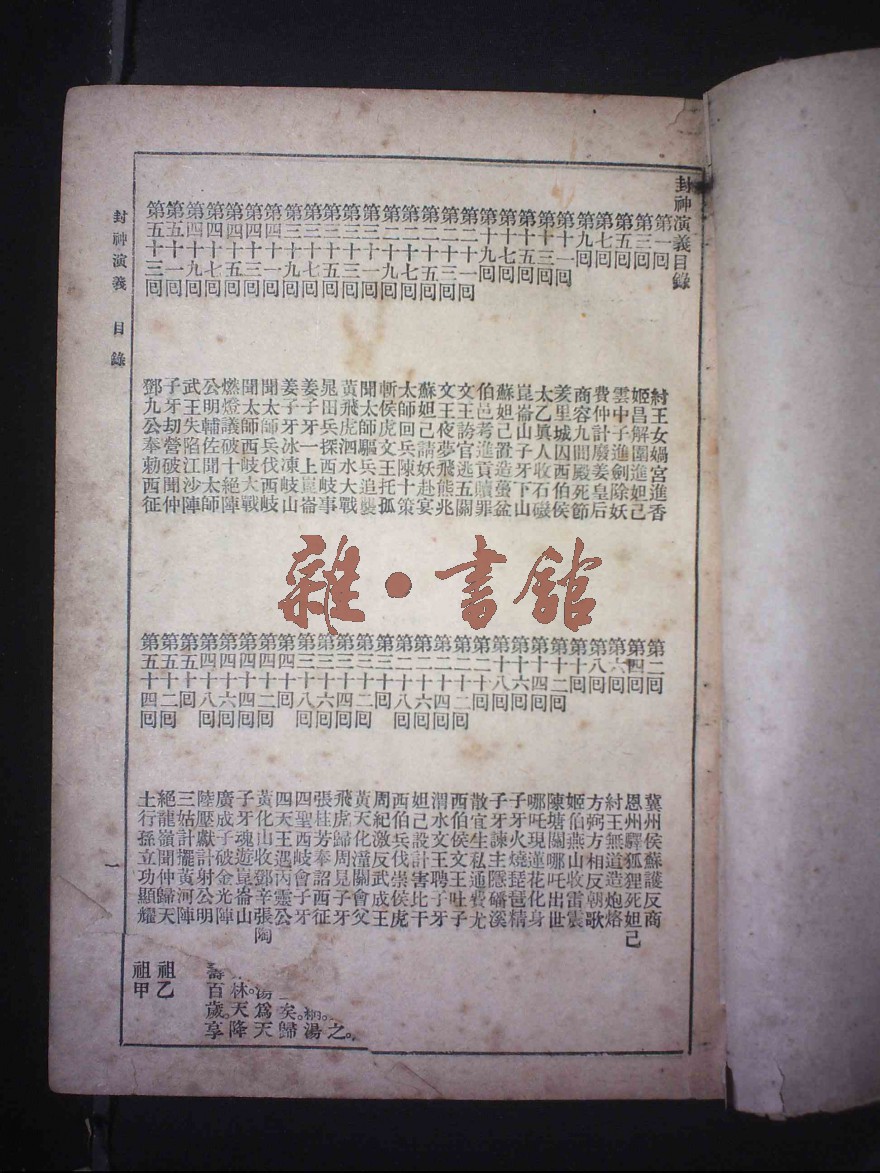 封神演義目錄
第一回 紂王女媧宮進香 第二回 冀州侯蘇護反商
第三回 姬昌解圍進妲己 第四回 恩州驛狐狸死妲己
第五回 雲中子進劍除妖 第六回 紂王無道造炮烙
第七回 費仲計廢姜皇后 第八回 方弼方相反朝歌
第九回 商容九間殿死節 第十回 姬伯燕山收雷震
第十一回 羑里城囚西伯侯 第十二回 陳塘關哪吒出世
第十三回 太乙眞人收石磯 第十四回 哪吒現蓮花化身
第十五回 崑崙山子牙下山 第十六回 子牙火燒琵琶精
第十七回 蘇妲己置造蠆盆 第十八回 子牙諫主隱磻溪
第十九回 伯邑考進貢贖罪 第二十回 散宜生私通費尤
第二十一回 文王誇官逃五關 第二十二回 西伯侯文王吐子
第二十三回 文王夜夢飛熊兆 第二十四回 渭水文王聘子牙
第二十五回 蘇妲己請妖赴宴 第二十六回 妲己設計害比干
第二十七回 太師回兵陳十策 第二十八回 西伯兵伐崇侯虎
第二十九回 斬侯虎文王托孤 第三十回 周紀激反武成王
第三十一回 聞太師驅兵追襲 第三十二回 黃天化潼關會父
第三十三回 黃飛虎泗水大戰 第三十四回 飛虎歸周見子牙
第三十五回 晁田兵探西岐事 第三十六回 張桂芳奉詔西征
第三十七回 姜子牙一上崑崙 第三十八回 四聖西岐會子牙
第三十九回 姜子牙冰凍岐山 第四十回 四天王遇丙靈公
第四十一回 聞太師兵伐西岐 第四十二回 黃化山收鄧辛張陶
第四十三回 聞太師西岐大戰 第四十四回 子牙魂遊崑崙山
第四十五回 燃燈議破十絕陣 第四十六回 廣成子破金光陣
第四十七回 公明輔佐聞太師 第四十八回 陸壓獻計射公明
第四十九回 武王失陷紅沙陣 第五十回 三姑計擺黃河陣
第五十一回 子牙劫營破聞仲 第五十二回 絕龍嶺聞仲歸天
第五十三回 鄧九公奉勅西征 第五十四回 土行孫立功顯耀
封神演義 目錄
之。
湯
矣。歸
湯爲天
林。天降
壽百歲。享
祖乙
祖甲
雜·書館